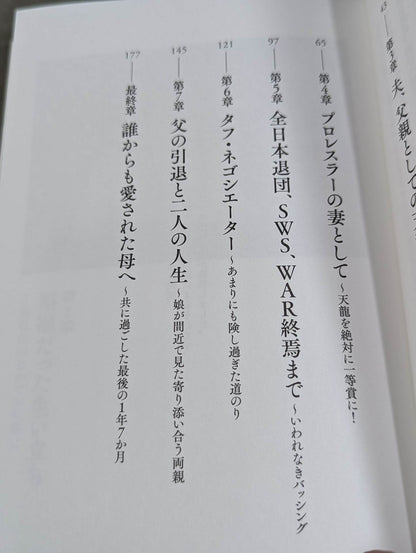 第3章 夫、父親としての
65 第4章 プロレスラーの妻として 〜天龍を絶対に一等賞に!
97 第5章 全日本退団、SWS、WAR終焉まで 〜いわれなきバッシング
121 第6章 タフ・ネゴシエーター 〜あまりにも険し過ぎた道のり
145 第7章 父の引退と二人の人生 〜娘が間近で見た寄り添い合う両親
177 最終章 誰からも愛された母へ 〜共に過ごした最後の1年7か月